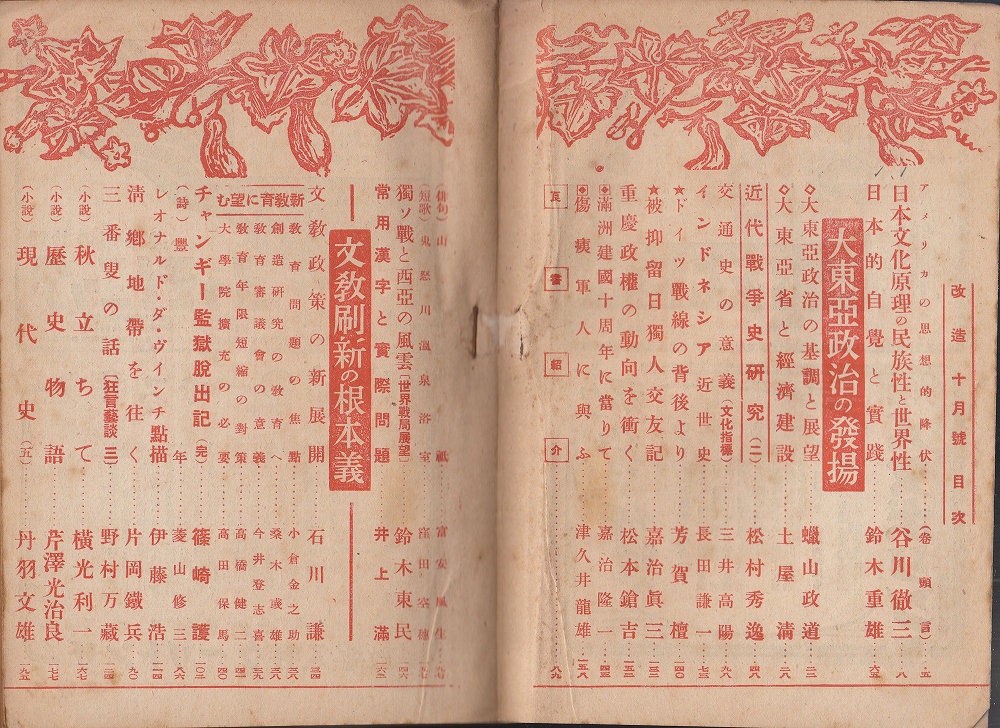 改造十月號目次
アメリカの思想的降伏 (卷頭言) 五
日本文化原理の民族性と世界性 谷川徹三 八
日本的自覺と實踐 鈴木重雄 六五
大東亞政治の發揚
◇大東亞政治の基調と展望 蠟山政道 二二
◇大東亞省と經濟建設 土屋淸 二八
近代戰爭史硏究(二) 松村秀逸 四八
交通史の意義(文化指標) 三井高陽 九六
インドネシア近世史 長田謙一 七三
★ドイツ戰線の背後より 芳賀檀 一四〇
★被抑留日獨人交友記 嘉治眞三
重慶政權の動向を衝く 松本鎗吉
◈滿洲建國十周年に當りて 嘉治隆一
◈傷痍軍人に與ふ 津久井龍雄 一五八
良書紹介 八九
(俳句) 山廬 富安風生
(短歌) 鬼怒川溫泉浴室 窪田空穗
獨ソ戰と西亞の風雲〔世界戰局展望〕 鈴木東民 四六
常用漢字と實際問題 井上滿 一六二
文敎刷新の根本義
文敎政策の新展開 石川謙 三四
新敎育に望む
敎育問題の焦點 小倉金之助 三六
創造硏究の敎育へ 桑木𢎭雄 三八
敎育審議會の意義 今井登志喜 三九
敎育年限短縮の對策 高橋健二 四一
大學院擴充の必要 高田保馬 四〇
チャンギー監獄脫出記(完) 篠崎護 一〇三
(詩) 豐年 菱山修三 八六
レオナルド・ダ・ヴィンチ點描 伊藤浩 一一四
淸鄕地帶を往く 片岡鐵兵 九〇
三番叟の話〔狂言藝談 三〕 野村万藏
(小說) 秋立ちて 橫光利一 一六七
(小說) 歷史物語 芹澤光治良 一七七
(小說) 現代史(五) 丹羽文雄 一九五